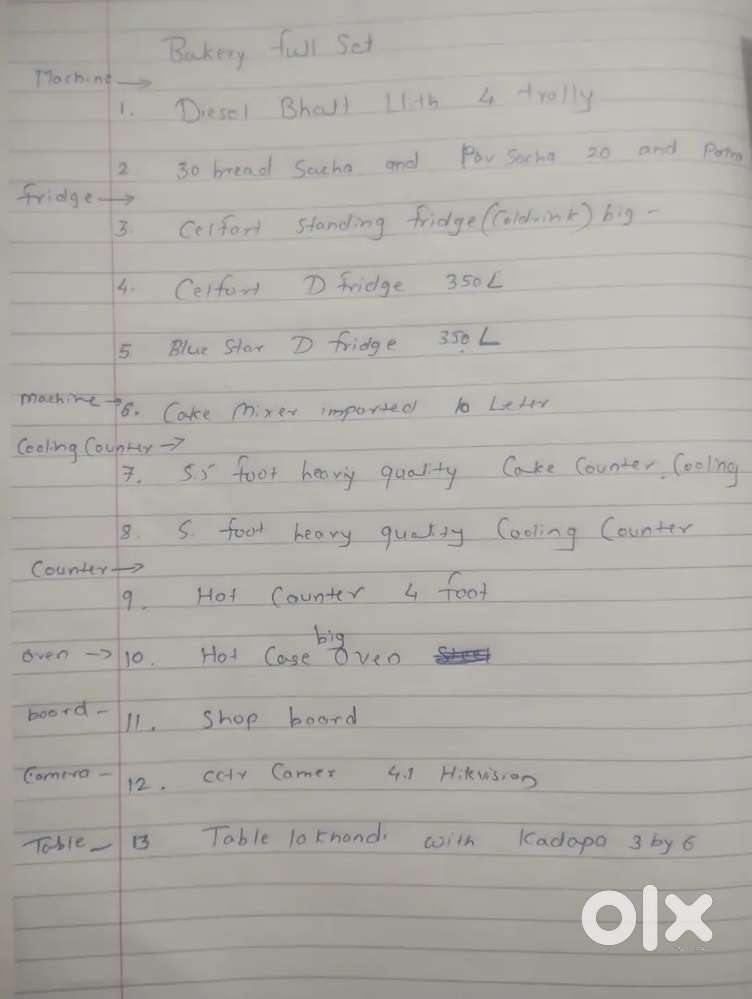 Bakery full Set
Machine →
1. Diesel Bhatt With 4 trolly
2 30 bread Sacha and Pav Sacha 20 and
fridge →
3. Celfort Standing fridge (Coldrink) big -
4. Celfort D fridge 350L
5. Blue Star D fridge 350L
Machine → 6. Cake Mixer imported 10 Leter
Cooling Counter →
7. 5.5 foot heavy quality Cake Counter Cooling
8. 5. foot heavy quality Cooling Counter
Counter →
9. Hot Counter 4 foot
Oven → 10. Hot Case big Oven
board - 11. Shop board
Camera - 12. cctv Camer 4.1 Hikvision
Table - 13 Table lokhandi with Kadapa 3 by 6
olx